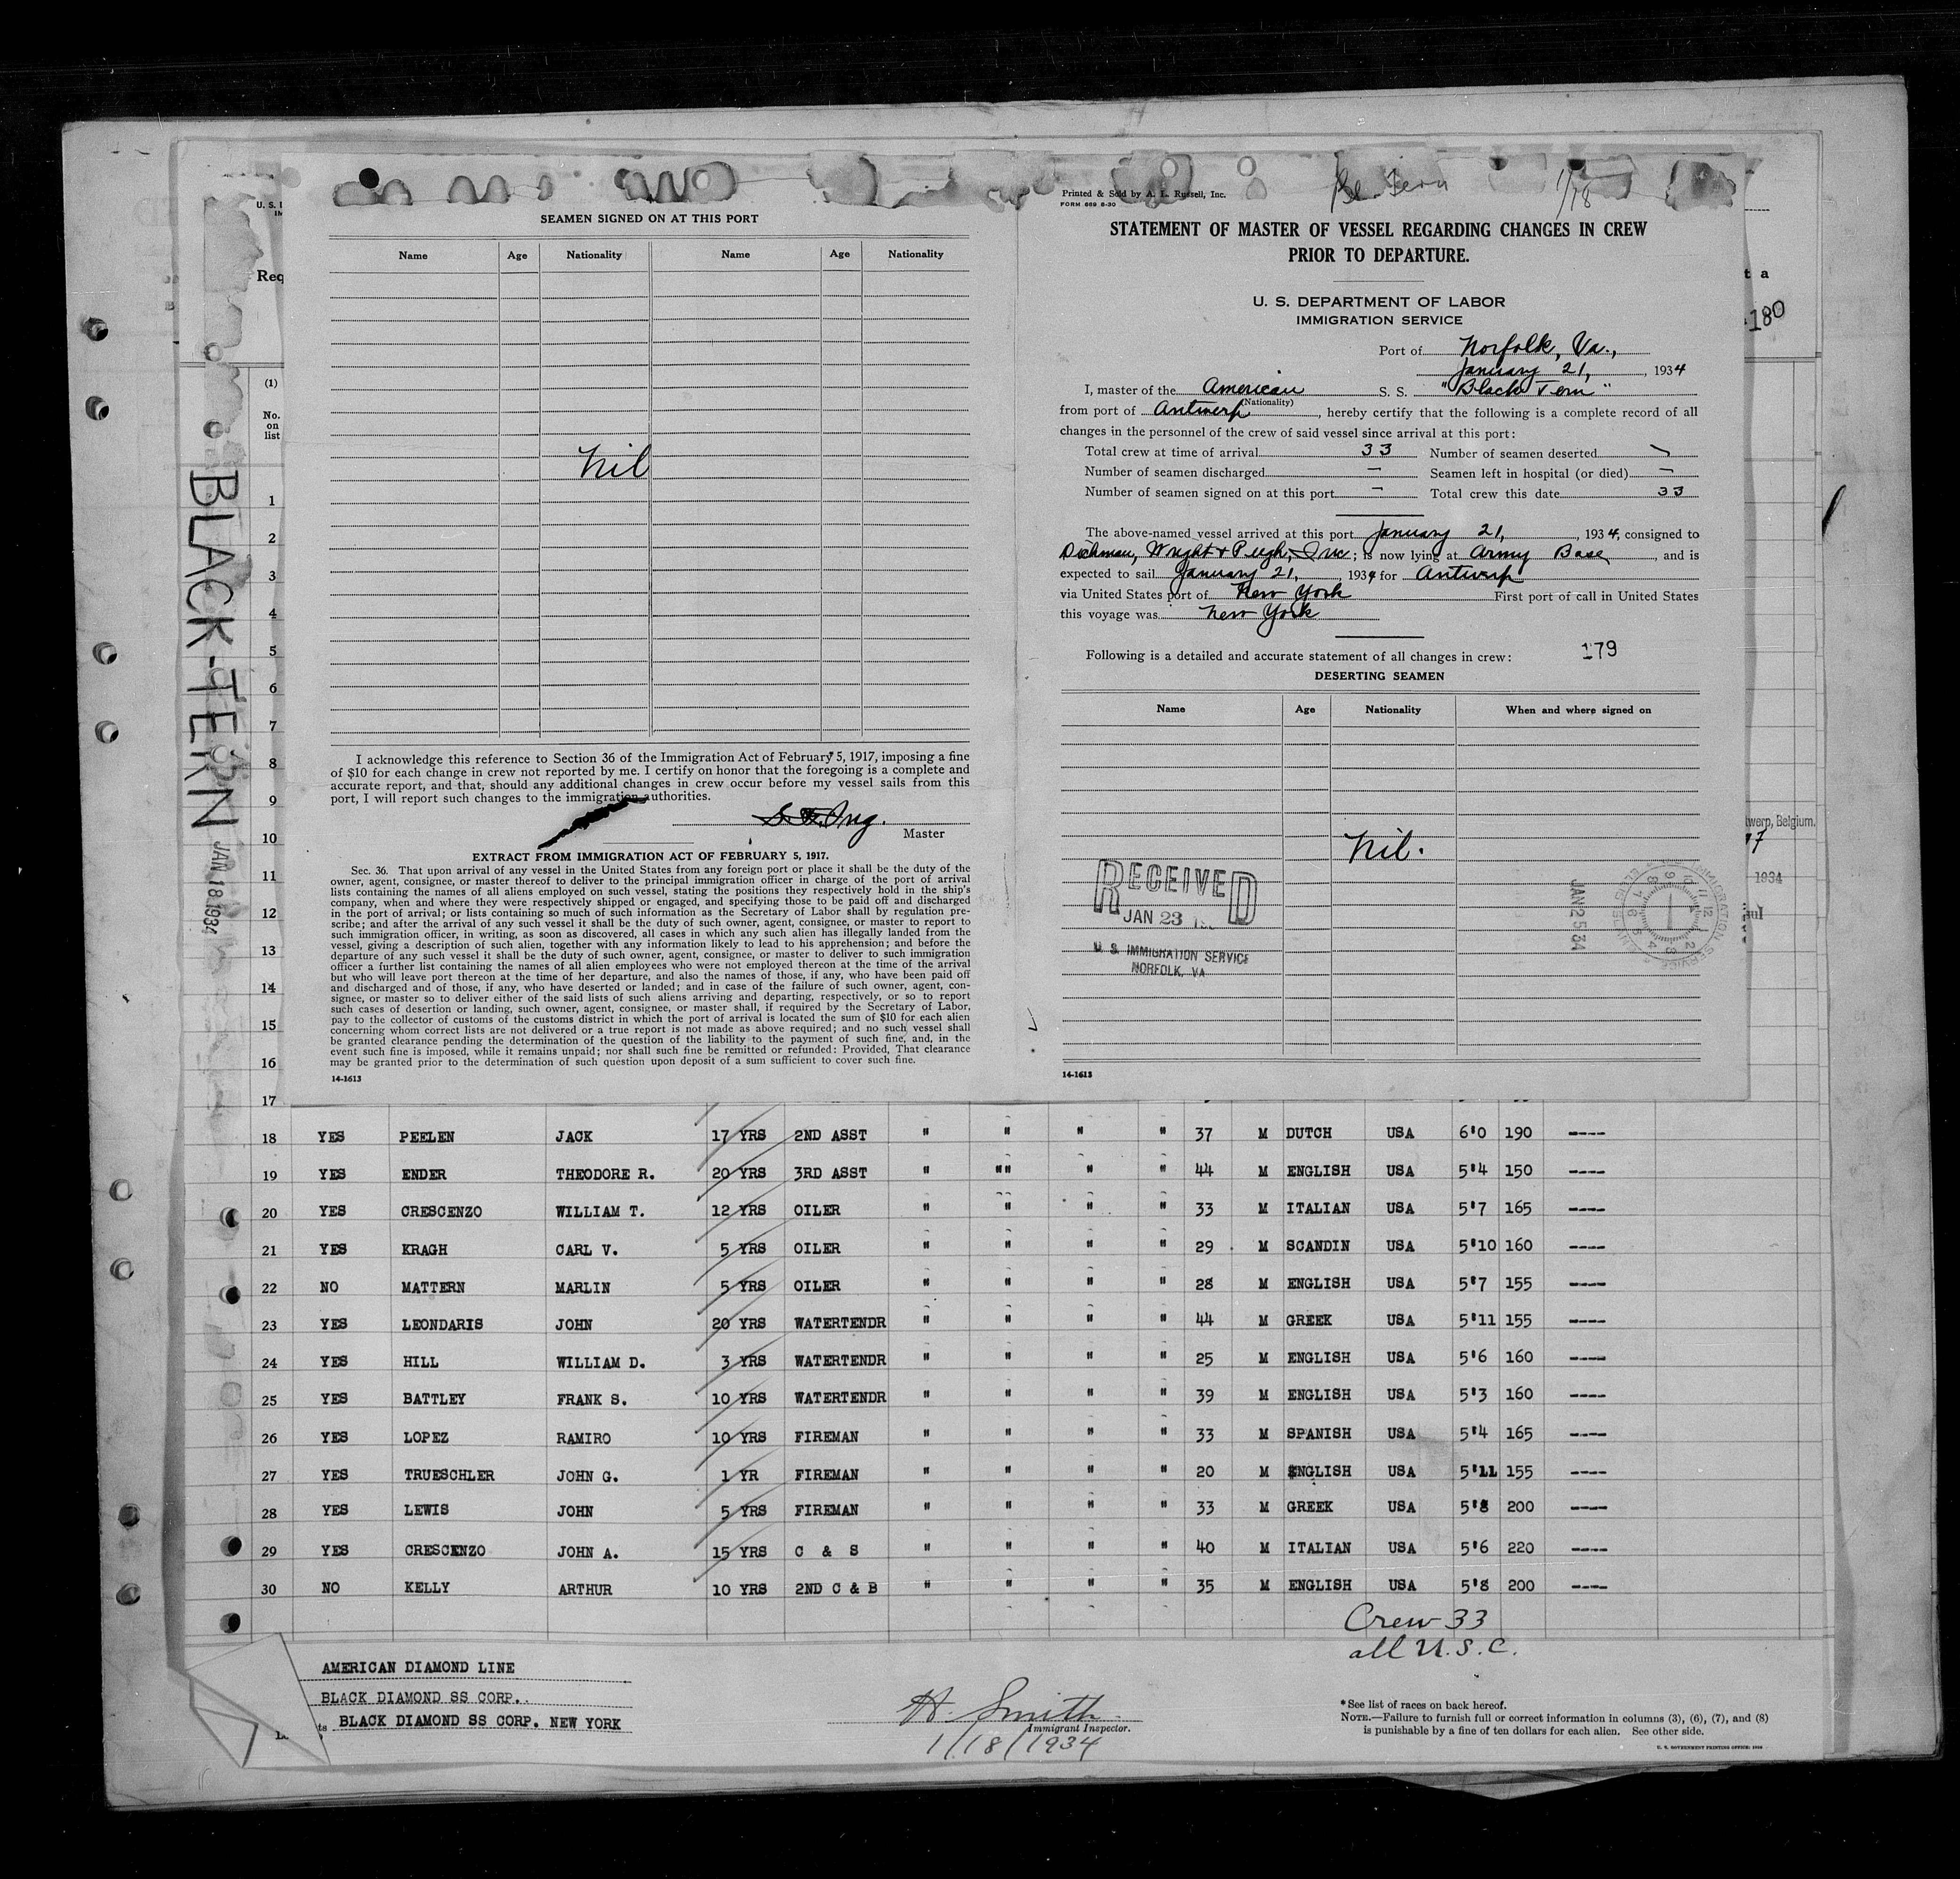 U. S.
Req
(1)
No.
on
list
BLACK-TERN
JAN 18 1934
SEAMEN SIGNED ON AT THIS PORT
Name Age Nationality Name Age Nationality
Nil
I acknowledge this reference to Section 36 of the Immigration Act of February 5, 1917, imposing a fine
of $10 for each change in crew not reported by me. I certify on honor that the foregoing is a complete and
accurate report, and that, should any additional changes in crew occur before my vessel sails from this
port, I will report such changes to the immigration authorities.
Master
EXTRACT FROM IMMIGRATION ACT OF FEBRUARY 5, 1917.
Sec. 36. That upon arrival of any vessel in the United States from any foreign port or place it shall be the duty of the
owner, agent, consignee, or master thereof to deliver to the principal immigration officer in charge of the port of arrival
lists containing the names of all aliens employed on such vessel, stating the positions they respectively hold in the ship's
company, when and where they were respectively shipped or engaged, and specifying those to be paid off and discharged
in the port of arrival; or lists containing so much of such information as the Secretary of Labor shall by regulation pre-
scribe; and after the arrival of any such vessel it shall be the duty of such owner, agent, consignee, or master to report to
such immigration officer, in writing, as soon as discovered, all cases in which any such alien has illegally landed from the
vessel, giving a description of such alien, together with any information likely to lead to his apprehension; and before the
departure of any such vessel it shall be the duty of such owner, agent, consignee, or master to deliver to such immigration
officer a further list containing the names of all alien employees who were not employed thereon at the time of the arrival
but who will leave port thereon at the time of her departure, and also the names of those, if any, who have been paid off
and discharged and of those, if any, who have deserted or landed; and in case of the failure of such owner, agent, con-
signee, or master so to deliver either of the said lists of such aliens arriving and departing, respectively, or so to report
such cases of desertion or landing, such owner, agent, consignee, or master shall, if required by the Secretary of Labor,
pay to the collector of customs of the customs district in which the port of arrival is located the sum of $10 for each alien
concerning whom correct lists are not delivered or a true report is not made as above required; and no such vessel shall
be granted clearance pending the determination of the question of the liability to the payment of such fine, and, in the
event such fine is imposed, while it remains unpaid; nor shall such fine be remitted or refunded: Provided, That clearance
may be granted prior to the determination of such question upon deposit of a sum sufficient to cover such fine.
14-1613
Printed & Sold by A. L. Russell, Inc.
FORM 669 6-30
Bl. Tern 1/18
STATEMENT OF MASTER OF VESSEL REGARDING CHANGES IN CREW
PRIOR TO DEPARTURE.
U. S. DEPARTMENT OF LABOR
IMMIGRATION SERVICE
Port of Norfolk, Va.,
January 21, 1934
I, master of the American S. S. "Black Tern"
(Nationality)
from port of Antwerp, hereby certify that the following is a complete record of all
changes in the personnel of the crew of said vessel since arrival at this port:
Total crew at time of arrival 33 Number of seamen deserted -
Number of seamen discharged - Seamen left in hospital (or died) -
Number of seamen signed on at this port - Total crew this date 33
The above-named vessel arrived at this port January 21, 1934, consigned to
Dichman, Wright & Pugh, Inc.; is now lying at Army Base, and is
expected to sail January 21, 1934 for Antwerp
via United States port of New York First port of call in United States
this voyage was New York
Following is a detailed and accurate statement of all changes in crew: 179
DESERTING SEAMEN
Name Age Nationality When and where signed on
Nil.
RECEIVED
JAN 23
U. S. IMMIGRATION SERVICE
NORFOLK, VA
JAN 25 34
IMMIGRATION SERVICE
14-1613
t a
180
twerp, Belgium.
1934
1
2
3
4
5
6
7
8
9
10
11
12
13
14
15
16
17
18 YES PEELEN JACK 17 YRS 2ND ASST " " " " 37 M DUTCH USA 6'0 190 ----
19 YES ENDER THEODORE R. 20 YRS 3RD ASST " "" " " 44 M ENGLISH USA 5'4 150 ----
20 YES CRESCENZO WILLIAM T. 12 YRS OILER " " " " 33 M ITALIAN USA 5'7 165 ----
21 YES KRAGH CARL V. 5 YRS OILER " " " " 29 M SCANDIN USA 5'10 160 ----
22 NO MATTERN MARLIN 5 YRS OILER " " " " 28 M ENGLISH USA 5'7 155 ----
23 YES LEONDARIS JOHN 20 YRS WATERTENDR " " " " 44 M GREEK USA 5'11 155 ----
24 YES HILL WILLIAM D. 3 YRS WATERTENDR " " " " 25 M ENGLISH USA 5'6 160 ----
25 YES BATTLEY FRANK S. 10 YRS WATERTENDR " " " " 39 M ENGLISH USA 5'3 160 ----
26 YES LOPEZ RAMIRO 10 YRS FIREMAN " " " " 33 M SPANISH USA 5'4 165 ----
27 YES TRUESCHLER JOHN G. 1 YR FIREMAN " " " " 20 M ENGLISH USA 5'11 155 ----
28 YES LEWIS JOHN 5 YRS FIREMAN " " " " 33 M GREEK USA 5'8 200 ----
29 YES CRESCENZO JOHN A. 15 YRS C & S " " " " 40 M ITALIAN USA 5'6 220 ----
30 NO KELLY ARTHUR 10 YRS 2ND C & B " " " " 35 M ENGLISH USA 5'8 200 ----
Crew 33
all U.S.C.
AMERICAN DIAMOND LINE
BLACK DIAMOND SS CORP.
ts BLACK DIAMOND SS CORP. NEW YORK
H. Smith
Immigrant Inspector.
1/18/1934
*See list of races on back hereof.
NOTE.—Failure to furnish full or correct information in columns (3), (6), (7), and (8)
is punishable by a fine of ten dollars for each alien. See other side.
U. S. GOVERNMENT PRINTING OFFICE: